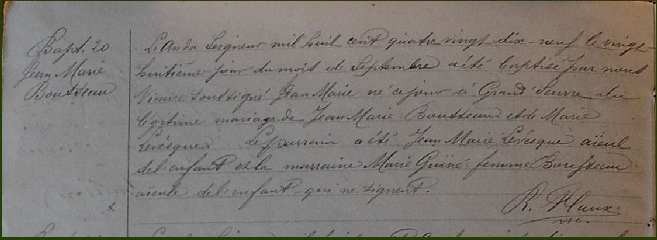 Bapt. 20
Jean Marie
Bousseau
L'an du Seigneur mil huit cent quatre vingt dix-neuf le vingt
huitième jour du mois de Septembre a été baptisé par nous
Vicaire soussigné Jean Marie né ce jour à Grand du
légitime mariage de Jean Marie Bousseau et de Marie
Lévêque. Le parrain a été Jean Marie Lévêque aïeul
de l'enfant et la marraine Marie femme Bousseau
aïeule de l'enfant qui ne signent.
R.
vic.